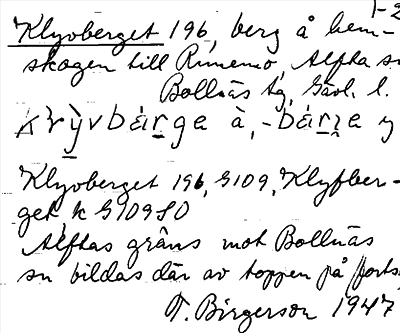 1-2
Klyvberget 196, berg å hem-
skogen till Runemo, Alfta sn
Bollnäs tg, Gävl. l.
Klyvberget 196, G109, Klyfber-
get k G109 SO
Alftas gräns mot Bollnäs
sn bildas där av toppen på (forts.
T. Birgerson 1947